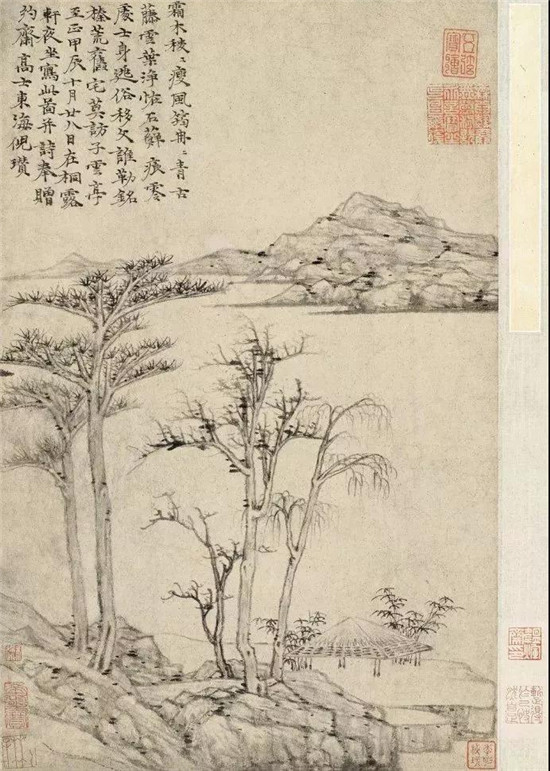 霜木稜〻瘦風筠冉〻青古
藤雲葉浄怪石蘚痕零
處士身逃俗移文誰勒銘
榛荒舊宅莫訪子雲亭
至正甲辰十月廿八日在桐露
軒夜坐寫此啚并詩奉贈
約齋高士東海倪瓚